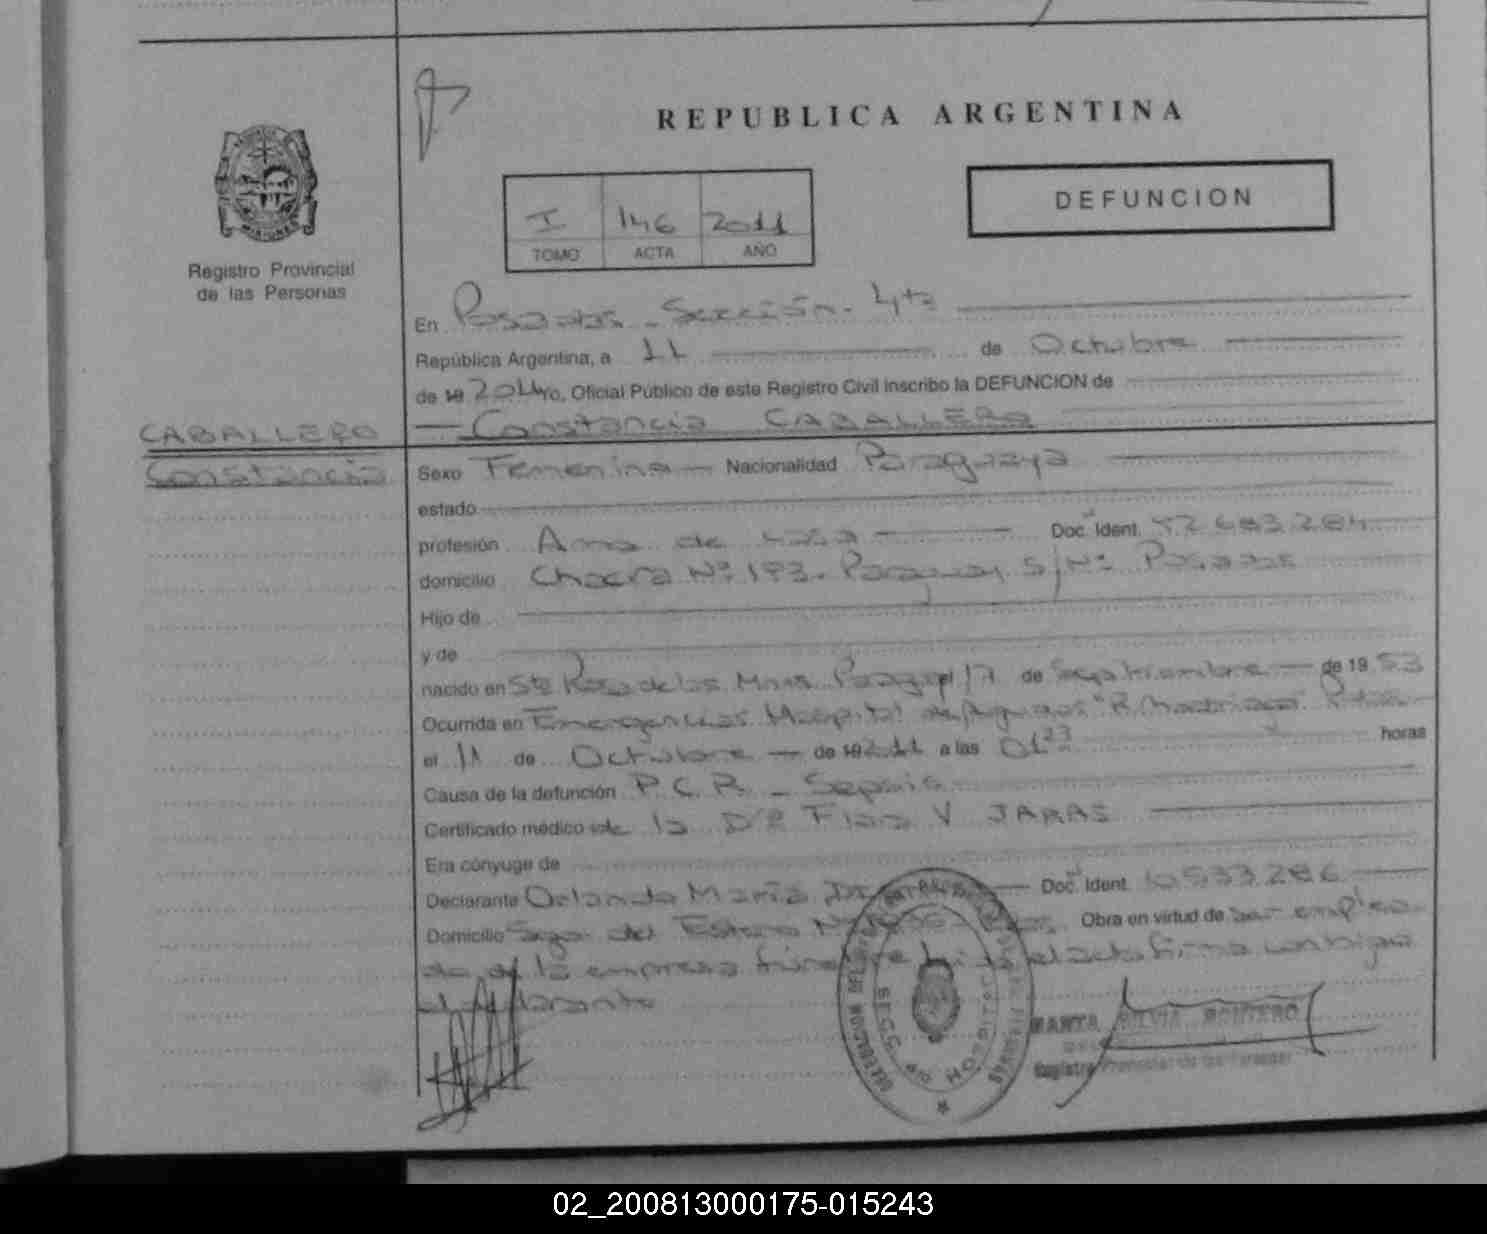 REPUBLICA ARGENTINA
DEFUNCION
I 146 2011
TOMO ACTA AÑO
Registro Provincial
de las Personas
En Posadas - Sección 4ta
República Argentina, a 11 de Octubre
de 19 2011 yo, Oficial Público de este Registro Civil inscribo la DEFUNCION de
Constancia CABALLERO
CABALLERO
Constancia
Sexo Femenina Nacionalidad Paraguaya
estado
profesión Ama de casa Doc. Ident.
domicilio Chacra Nº 193. Paraguay S/Nº Posadas
Hijo de
y de
nacido en Sta Rosa de las Mnes 17 de Septiembre de 19 53
Ocurrida en Emergencias Hospital de Agudos "R. Madariaga"
el 11 de Octubre de 19 2011 a las 01 23 horas
Causa de la defunción P.C.R. - Sepsis
Certificado médico de la Dra V JARAS
Era cónyuge de
Declarante Orlando María Doc. Ident. 10.533.286
Domicilio Sgo. del Estero Obra en virtud de ser emplea
do de la empresa el acta firma conmigo
el declarante
SECC. 4a HOSPITAL
MARTA SILVIA MONTERO
Registro Provincial de las Personas
02_200813000175-015243